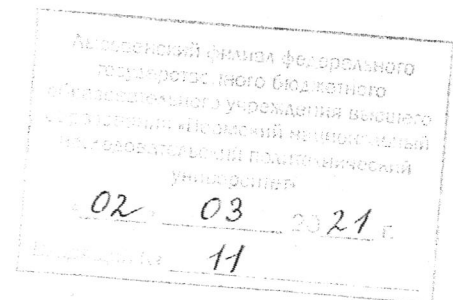 Лысьвенский филиал федерального
государственного бюджетного
образовательного учреждения высшего
образования «Пермский национальный
исследовательский политехнический
университет»
« 02 » 03 2021 г.
11